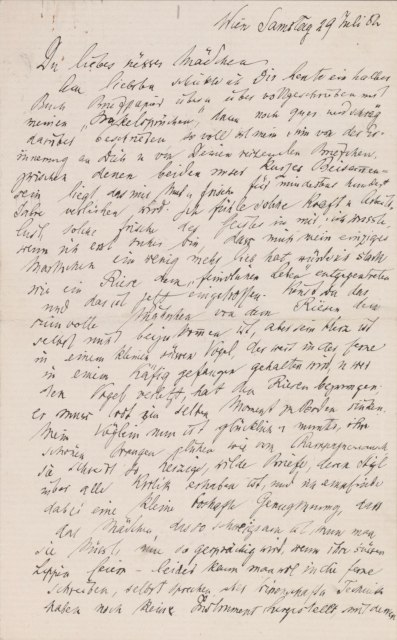 Wien Samstag 29 Juli 82
Du liebes süsses Mädchen
Am liebsten schickte ich Dir heute ein halbes
Buch Briefpapier über u über vollgeschrieben mit
meinen „Orakelsprüchen", kann noch quer
darüber beschrieben, so voll ist mein Sinn von der Er-
innerung an Dich u von Deinen reizenden Briefchen,
zwischen denen beiden unser kurzes Beisammen-
sein liegt das mir Mut u Frische für mindestens hundert
Jahre verliehen wird. Ich fühle solche Kraft u Lebens-
lust, solche Frische des Geistes in mir, ich wusste,
wenn ich erst sicher bin, dass mich mein einziges
Marthchen ein wenig mehr lieb hat, würde ich stark
wie ein Riese dem feindlichen Leben entgegentreten
und das ist jetzt eingetroffen. Kennst du das
sinnvolle Märchen von dem Riesen dem
selbst nicht beizukommen ist, aber sein Herz ist
in einem kleinen süssen Vogel, der weit in der Ferne
in einem Käfig gefangen gehalten wird, u wer
den Vogel verletzt, hat den Riesen bezwungen
er muss tot zu selben Moment zu Boden sinken.
Mein Vöglein nun ist glücklich u munter, ihre
schönen Wangen glühen wie von Champagnerrausch
sie schreibt so herzige, wilde Briefe, deren Styl
über alle Kritik erhaben ist, und ich empfinde
dabei eine kleine boshafte Genugtuung, dass
das Mädchen, das so schweigsam ist wenn man
sie küsst, nun so gesprächig wird, wenn ihre süssen
Lippen feiern – leider kann man wol in die Ferne
schreiben, selbst sprechen, aber Technik
haben noch keine Instrumente hergestellt mit denen